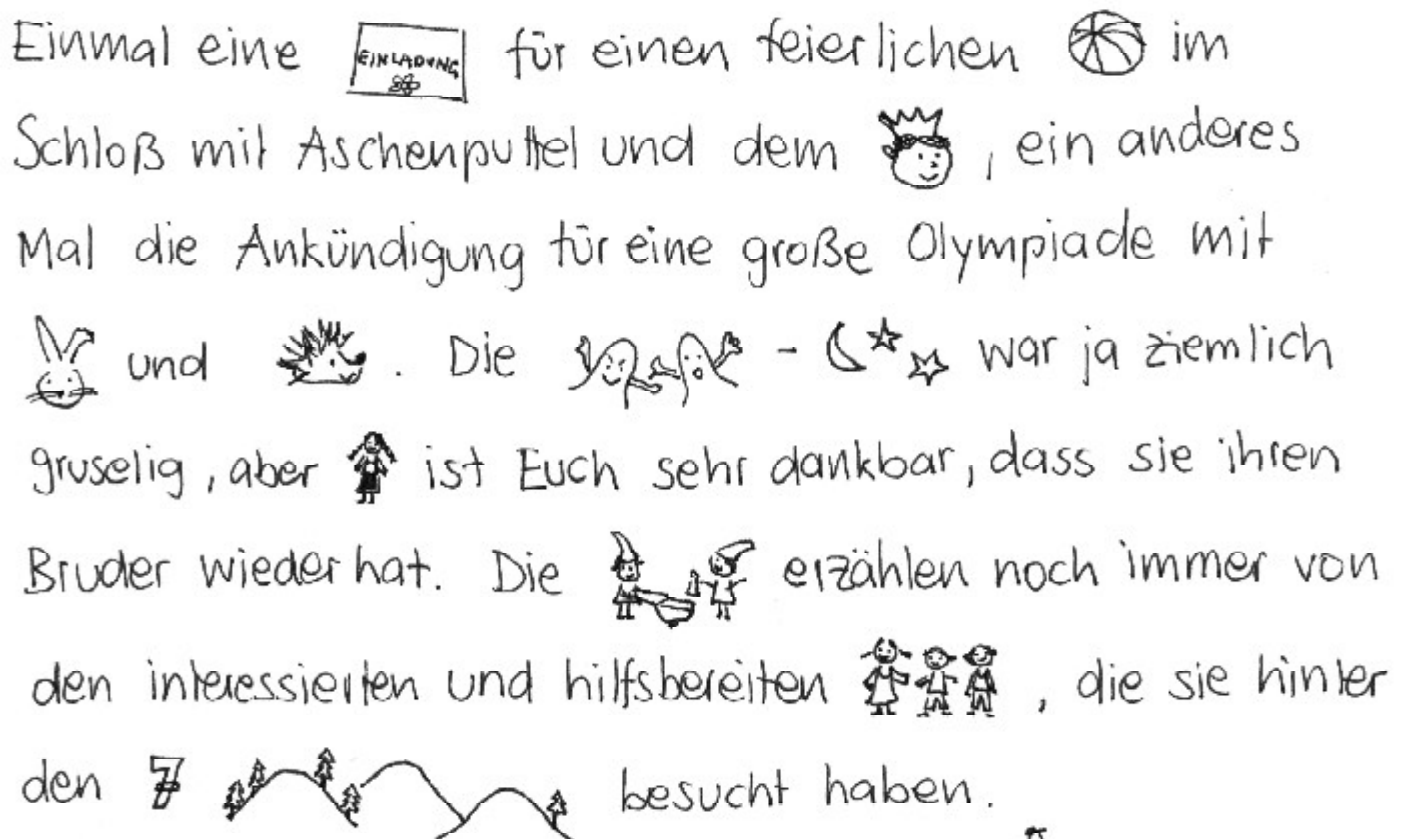 Einmal eine EINLADUNG für einen feierlichen im
Schloß mit Aschenputtel und dem , ein anderes
Mal die Ankündigung für eine große Olympiade mit
und . Die - war ja ziemlich
gruselig, aber ist Euch sehr dankbar, dass sie ihren
Bruder wieder hat. Die erzählen noch immer von
den interessierten und hilfsbereiten , die sie hinter
den 7 besucht haben.